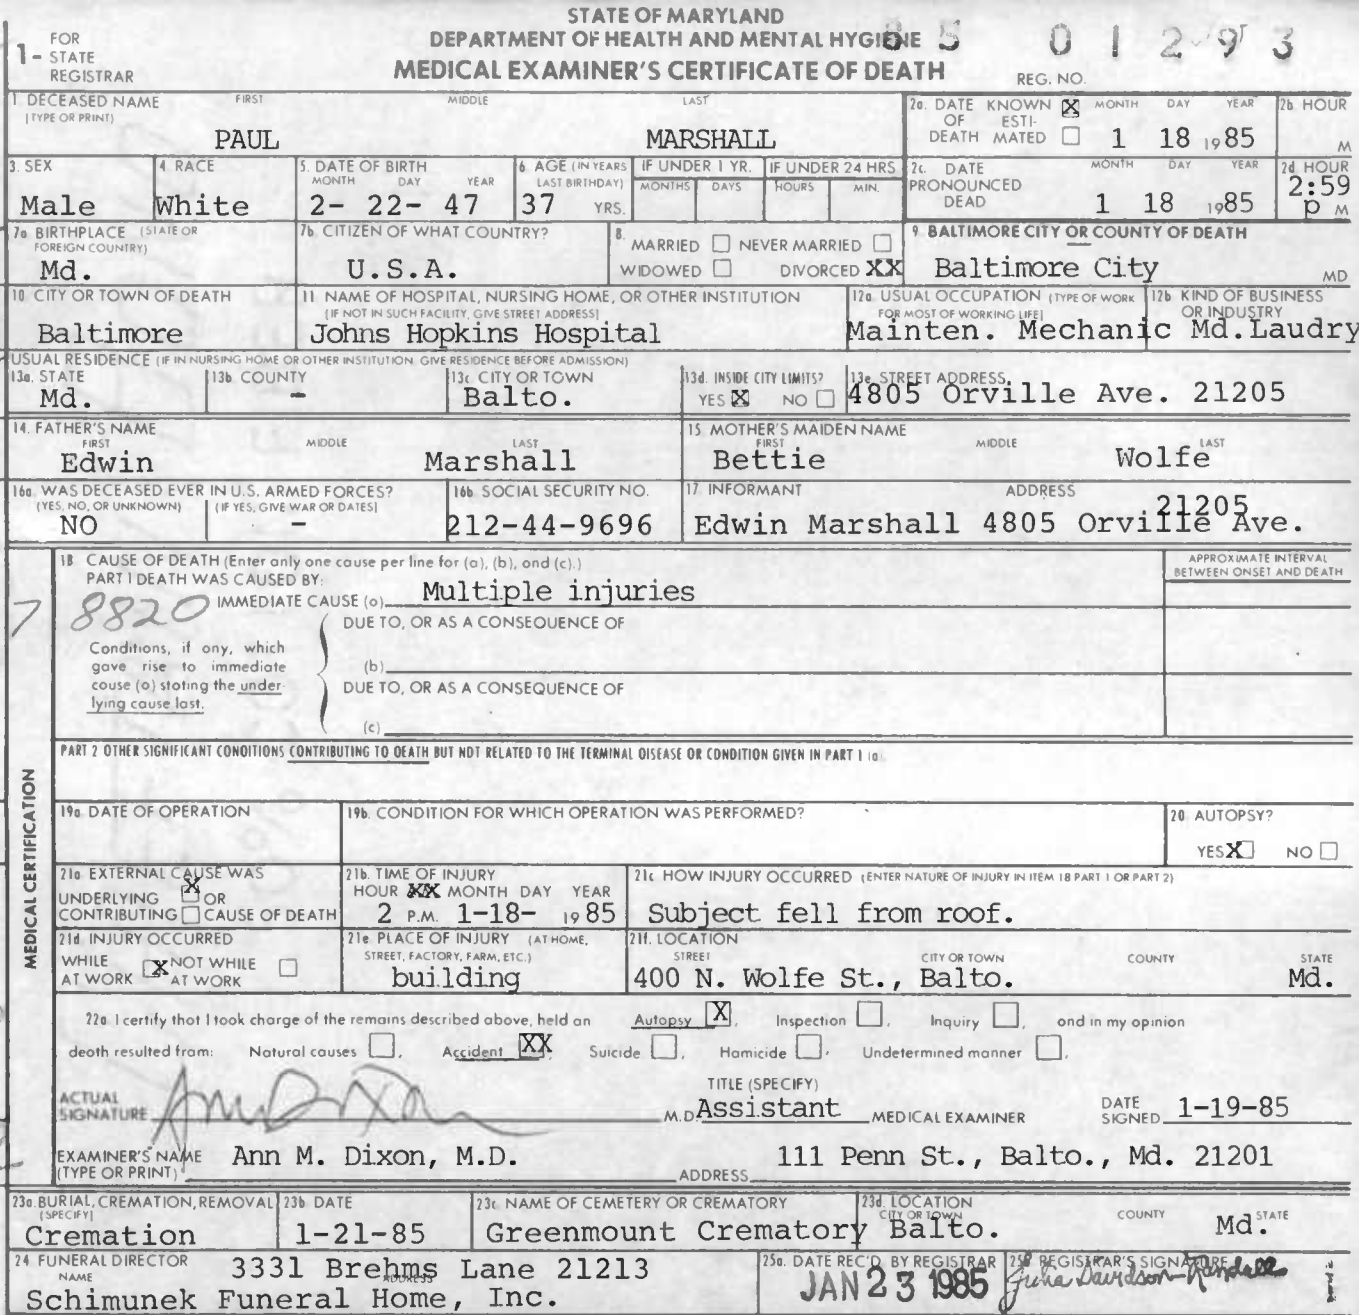 STATE OF MARYLAND
DEPARTMENT OF HEALTH AND MENTAL HYGIENE
MEDICAL EXAMINER'S CERTIFICATE OF DEATH
1- FOR STATE REGISTRAR
85 01293
REG. NO.
1 DECEASED NAME (TYPE OR PRINT) FIRST MIDDLE LAST
PAUL MARSHALL
2a. DATE OF DEATH KNOWN X ESTIMATED MONTH DAY YEAR
1 18 1985
2b HOUR
M
3. SEX
Male
4 RACE
White
5. DATE OF BIRTH MONTH DAY YEAR
2- 22- 47
6 AGE (IN YEARS LAST BIRTHDAY)
37 YRS.
IF UNDER 1 YR. MONTHS DAYS
IF UNDER 24 HRS HOURS MIN.
2c. DATE PRONOUNCED DEAD MONTH DAY YEAR
1 18 1985
2d HOUR
2:59 p M
7a BIRTHPLACE (STATE OR FOREIGN COUNTRY)
Md.
7b. CITIZEN OF WHAT COUNTRY?
U.S.A.
8. MARRIED NEVER MARRIED
WIDOWED DIVORCED XX
9 BALTIMORE CITY OR COUNTY OF DEATH
Baltimore City MD
10 CITY OR TOWN OF DEATH
Baltimore
11 NAME OF HOSPITAL, NURSING HOME, OR OTHER INSTITUTION (IF NOT IN SUCH FACILITY, GIVE STREET ADDRESS)
Johns Hopkins Hospital
12a USUAL OCCUPATION (TYPE OF WORK FOR MOST OF WORKING LIFE)
Mainten. Mechanic
12b KIND OF BUSINESS OR INDUSTRY
Md.Laudry
USUAL RESIDENCE (IF IN NURSING HOME OR OTHER INSTITUTION GIVE RESIDENCE BEFORE ADMISSION)
13a. STATE
Md.
13b COUNTY
-
13c CITY OR TOWN
Balto.
13d. INSIDE CITY LIMITS?
YES X NO
13e STREET ADDRESS
4805 Orville Ave. 21205
14. FATHER'S NAME FIRST MIDDLE LAST
Edwin Marshall
15 MOTHER'S MAIDEN NAME FIRST MIDDLE LAST
Bettie Wolfe
16a WAS DECEASED EVER IN U.S. ARMED FORCES?
(YES, NO, OR UNKNOWN) (IF YES, GIVE WAR OR DATES)
NO -
16b SOCIAL SECURITY NO.
212-44-9696
17 INFORMANT ADDRESS
21205
Edwin Marshall 4805 Orville Ave.
MEDICAL CERTIFICATION
18 CAUSE OF DEATH (Enter only one cause per line for (a), (b), and (c).)
APPROXIMATE INTERVAL BETWEEN ONSET AND DEATH
PART I DEATH WAS CAUSED BY:
7 8820
IMMEDIATE CAUSE (a) Multiple injuries
DUE TO, OR AS A CONSEQUENCE OF
Conditions, if any, which
gave rise to immediate
cause (a) stating the under-
lying cause last.
(b)
DUE TO, OR AS A CONSEQUENCE OF
(c)
PART 2 OTHER SIGNIFICANT CONDITIONS CONTRIBUTING TO DEATH BUT NOT RELATED TO THE TERMINAL DISEASE OR CONDITION GIVEN IN PART 1 (a)
19a DATE OF OPERATION
19b. CONDITION FOR WHICH OPERATION WAS PERFORMED?
20 AUTOPSY?
YES X NO
21a EXTERNAL CAUSE WAS
UNDERLYING X OR
CONTRIBUTING CAUSE OF DEATH
21b. TIME OF INJURY
HOUR XX MONTH DAY YEAR
2 P.M. 1-18- 1985
21c HOW INJURY OCCURRED (ENTER NATURE OF INJURY IN ITEM 18 PART 1 OR PART 2)
Subject fell from roof.
21d INJURY OCCURRED
WHILE AT WORK X NOT WHILE AT WORK
21e PLACE OF INJURY (AT HOME, STREET, FACTORY, FARM, ETC.)
building
21f. LOCATION STREET CITY OR TOWN COUNTY STATE
400 N. Wolfe St., Balto. Md.
22a I certify that I took charge of the remains described above, held an Autopsy X, Inspection , Inquiry , and in my opinion
death resulted from: Natural causes , Accident XX, Suicide , Homicide , Undetermined manner ,
ACTUAL SIGNATURE Ann Dixon M.D.
TITLE (SPECIFY)
Assistant MEDICAL EXAMINER
DATE SIGNED 1-19-85
EXAMINER'S NAME (TYPE OR PRINT) Ann M. Dixon, M.D.
ADDRESS 111 Penn St., Balto., Md. 21201
23a BURIAL, CREMATION, REMOVAL (SPECIFY)
Cremation
23b DATE
1-21-85
23c NAME OF CEMETERY OR CREMATORY
Greenmount Crematory
23d. LOCATION CITY OR TOWN COUNTY STATE
Balto. Md.
24 FUNERAL DIRECTOR NAME ADDRESS
3331 Brehms Lane 21213
Schimunek Funeral Home, Inc.
25a. DATE REC'D BY REGISTRAR
JAN 23 1985
25b REGISTRAR'S SIGNATURE
Julia Davidson-Randall